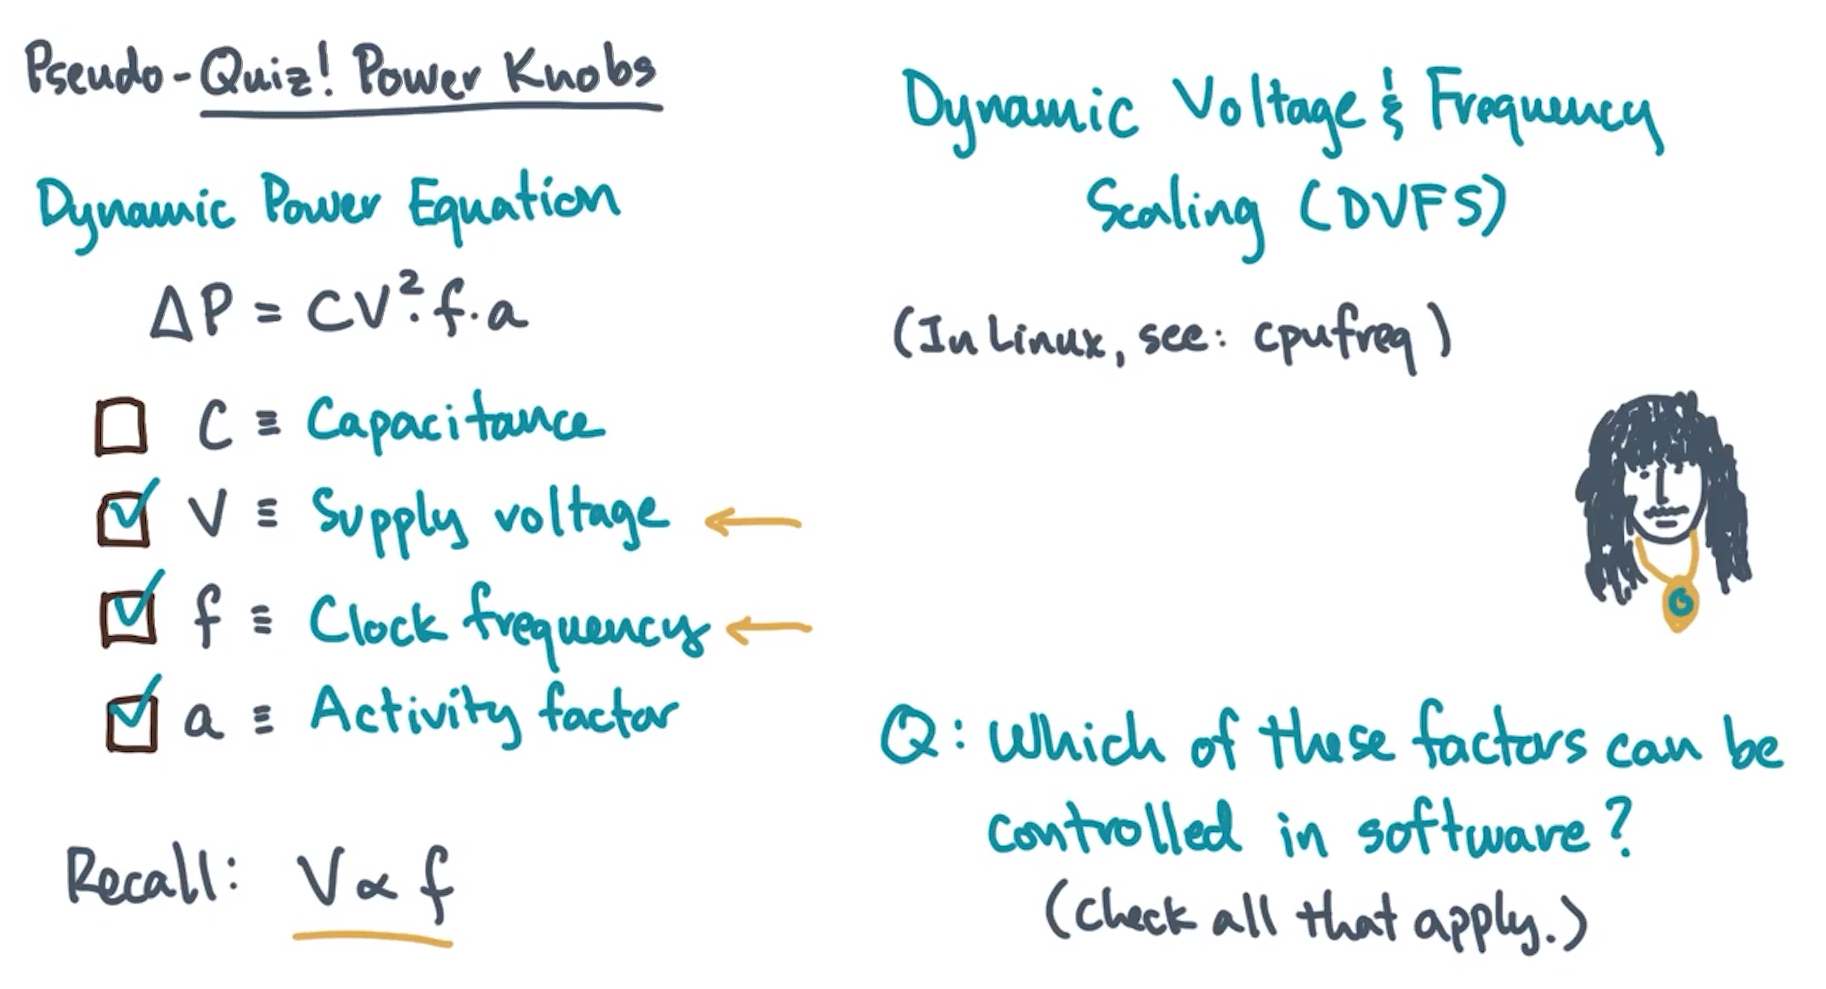 Pseudo-Quiz! Power Knobs
Dynamic Power Equation
ΔP = CV²·f·a
C ≡ Capacitance
V ≡ Supply voltage
f ≡ Clock frequency
a ≡ Activity factor
Recall: V ∝ f
Dynamic Voltage & Frequency
Scaling (DVFS)
(In Linux, see: cpufreq)
Q: Which of these factors can be
controlled in software?
(Check all that apply.)